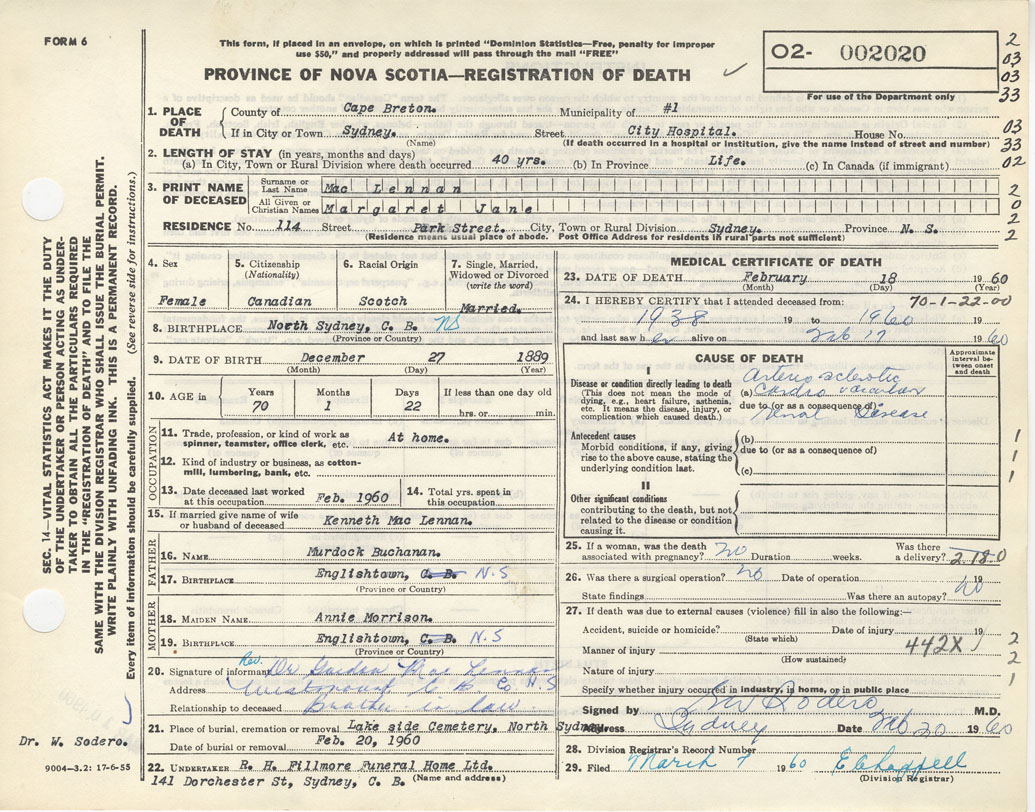 FORM 6
This form, if placed in an envelope, on which is printed "Dominion Statistics—Free, penalty for improper
use $50," and properly addressed will pass through the mail "FREE"
PROVINCE OF NOVA SCOTIA—REGISTRATION OF DEATH
02- 002020
For use of the Department only
2
03
03
33
03
33
02
2
0
2
2
SEC. 14—VITAL STATISTICS ACT MAKES IT THE DUTY
OF THE UNDERTAKER OR PERSON ACTING AS UNDER-
TAKER TO OBTAIN ALL THE PARTICULARS REQUIRED
IN THE "REGISTRATION OF DEATH" AND TO FILE THE
SAME WITH THE DIVISION REGISTRAR WHO SHALL ISSUE THE BURIAL PERMIT.
WRITE PLAINLY WITH UNFADING INK. THIS IS A PERMANENT RECORD.
Every item of information should be carefully supplied. (See reverse side for instructions.)
1. PLACE OF DEATH
County of Cape Breton. Municipality of #1
If in City or Town Sydney. Street City Hospital. House No.
(Name) (If death occurred in a hospital or institution, give the name instead of street and number)
2. LENGTH OF STAY (in years, months and days)
(a) In City, Town or Rural Division where death occurred 40 yrs. (b) In Province Life. (c) In Canada (if immigrant)
3. PRINT NAME OF DECEASED
Surname or Last Name Mac Lennan
All Given or Christian Names Margaret Jane
RESIDENCE No. 114 Street Park Street. City, Town or Rural Division Sydney. Province N. S.
(Residence means usual place of abode. Post Office Address for residents in rural parts not sufficient)
4. Sex
Female
5. Citizenship
(Nationality)
Canadian
6. Racial Origin
Scotch
7. Single, Married,
Widowed or Divorced
(write the word)
Married.
8. BIRTHPLACE North Sydney, C. B. NS
(Province or Country)
9. DATE OF BIRTH December 27 1889
(Month) (Day) (Year)
10. AGE in
Years Months Days If less than one day old
70 1 22 hrs. or min.
OCCUPATION
11. Trade, profession, or kind of work as
spinner, teamster, office clerk, etc. At home.
12. Kind of industry or business, as cotton-
mill, lumbering, bank, etc.
13. Date deceased last worked
at this occupation Feb. 1960
14. Total yrs. spent in
this occupation
15. If married give name of wife
or husband of deceased Kenneth Mac Lennan.
FATHER
16. NAME Murdock Buchanan.
17. BIRTHPLACE Englishtown, C. B. N.S
(Province or Country)
MOTHER
18. MAIDEN NAME Annie Morrison.
19. BIRTHPLACE Englishtown, C. B. N.S
(Province or Country)
20. Signature of informant Rev. Dr
Address C B Co. N.S
Relationship to deceased Brother in law
21. Place of burial, cremation or removal Lake side Cemetery, North Sydney.
Date of burial or removal Feb. 20, 1960
22. UNDERTAKER R. H. Fillmore Funeral Home Ltd.
141 Dorchester St, Sydney, C. B. (Name and address)
Dr. W. Sodero.
9004-3.2: 17-6-55
MEDICAL CERTIFICATE OF DEATH
23. DATE OF DEATH February 18 1960
(Month) (Day) (Year)
24. I HEREBY CERTIFY that I attended deceased from: 70-1-22-00
1938 19 to 1960 19
and last saw her alive on Feb 17 1960
CAUSE OF DEATH
Approximate
interval be-
tween onset
and death
I
Disease or condition directly leading to death
(This does not mean the mode of
dying, e.g., heart failure, asthenia,
etc. It means the disease, injury, or
complication which caused death.)
Arterio sclerotic
(a) Cardio vascular
due to (or as a consequence of)
Renal Disease
Antecedent causes
Morbid conditions, if any, giving
rise to the above cause, stating the
underlying condition last.
(b)
due to (or as a consequence of)
(c)
1
1
1
II
Other significant conditions
contributing to the death, but not
related to the disease or condition
causing it.
25. If a woman, was the death
associated with pregnancy? no Duration weeks. Was there
a delivery? 2-18-0
26. Was there a surgical operation? no Date of operation 19
State findings Was there an autopsy? no
27. If death was due to external causes (violence) fill in also the following:—
Accident, suicide or homicide? Date of injury 19
(State which)
Manner of injury 442X
(How sustained)
Nature of injury
Specify whether injury occurred in industry, in home, or in public place
2
1
2
2
1
Signed by W Sodero M.D.
Address Sydney Date Feb 20 1960
28. Division Registrar's Record Number
29. Filed March 7 1960 E Chappell
(Division Registrar)